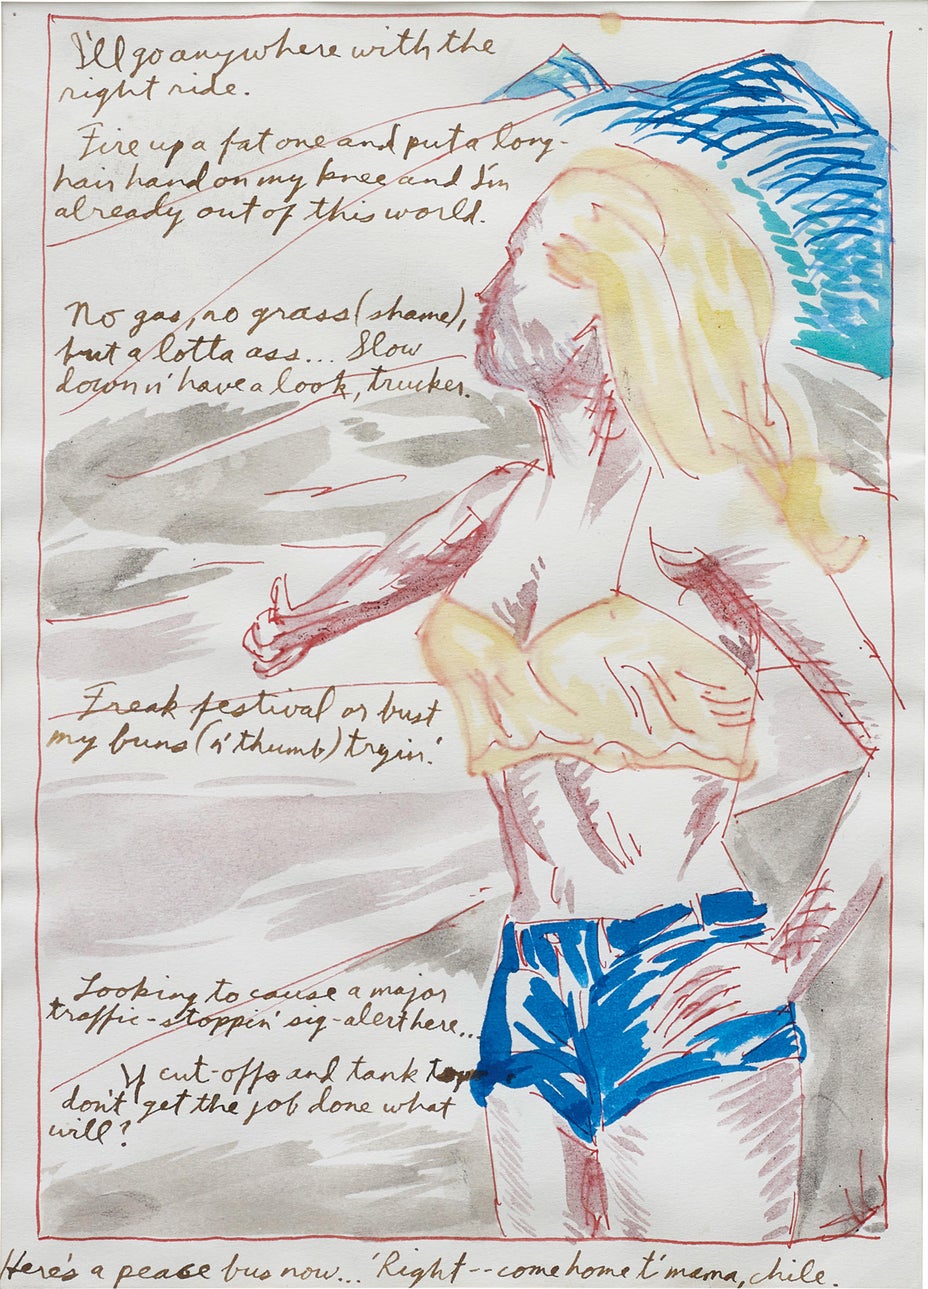 I'll go anywhere with the
right ride.
Fire up a fat one and put a long-
hair hand on my knee and I'm
already out of this world.
No gas, no grass (shame),
but a lotta ass... Slow
down n' have a look, trucker.
Freak festival or bust
my buns (n' thumb) tryin'.
Looking to cause a major
traffic-stoppin' sig-alert here...
If cut-offs and tank tops
don't get the job done what
will?
Here's a peace bus now... 'Right -- come home t' mama, chile.